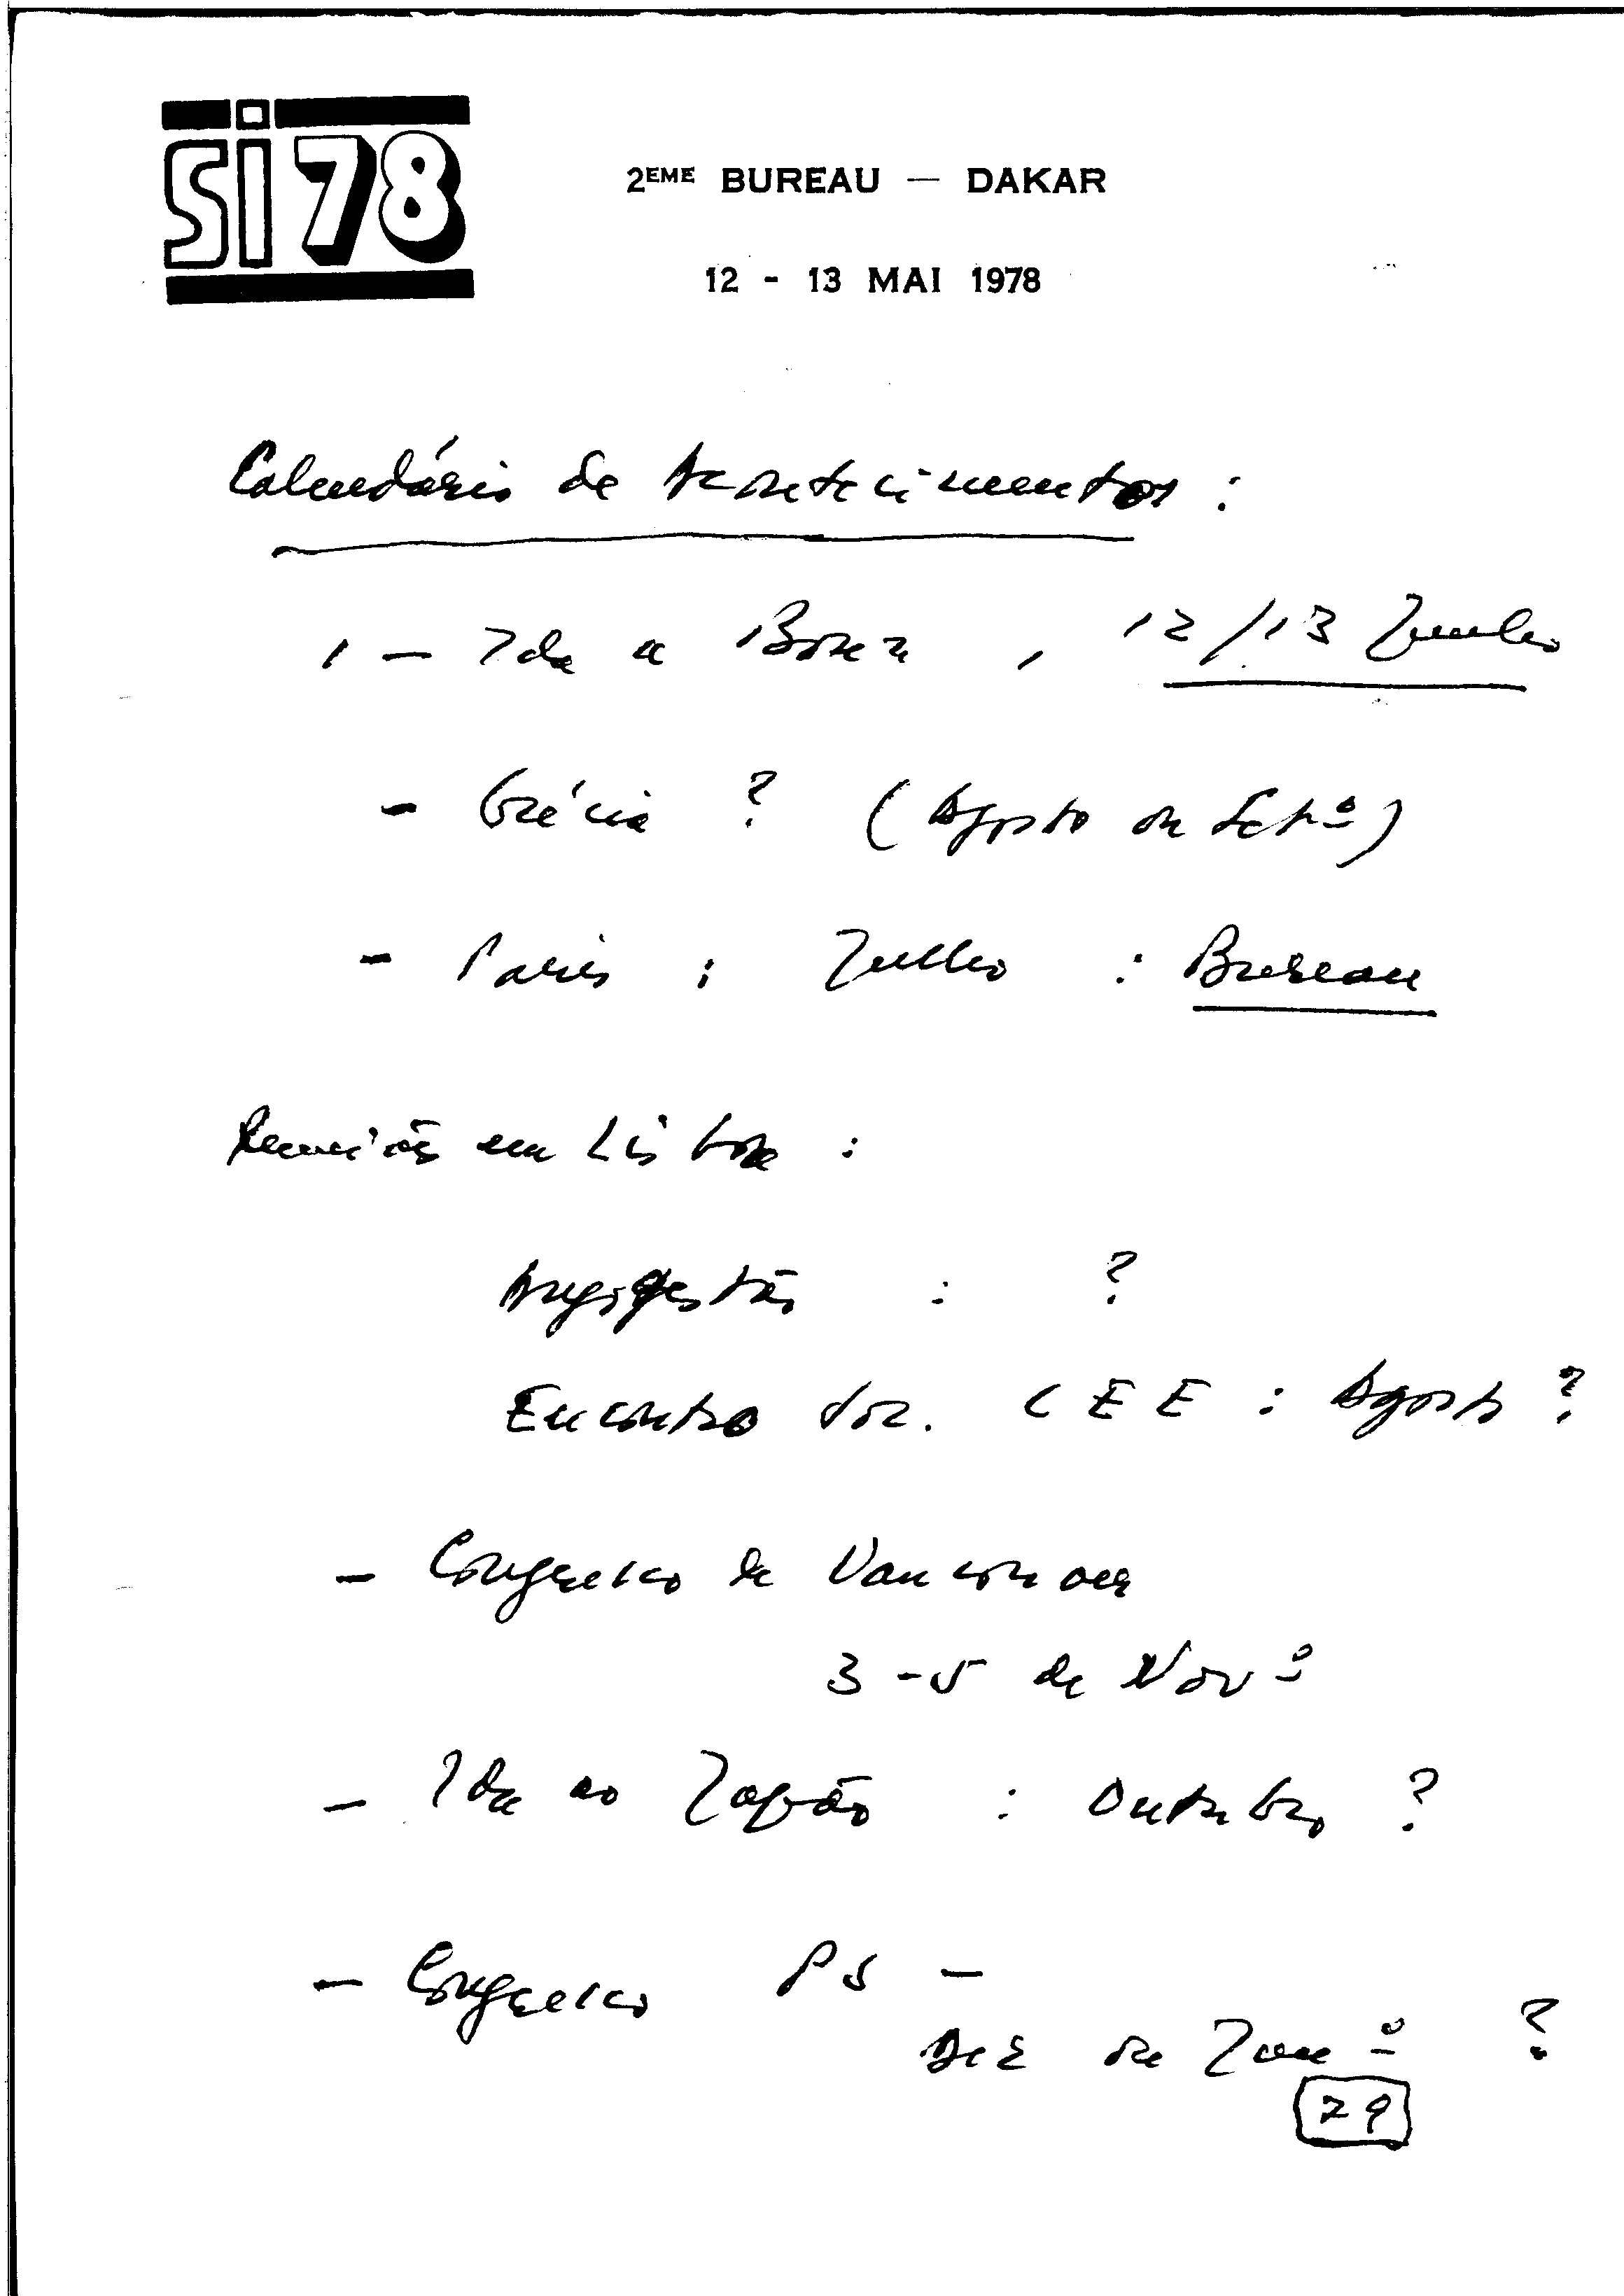 SI 78
2EME BUREAU — DAKAR
12 - 13 MAI 1978
Calendário de Acontecimentos :
1 — Ida a Bona , 12/13 Junho
- Grécia ? (Agosto ou Setº)
- Paris : Julho : Bureau
Reunião em Lisboa :
Autogestão : ?
Encontro soc. CEE : Agosto ?
- Congresso de Vancouver
3 - 5 de Novº
- Ida ao Japão : Outubro ?
- Congresso PS -
Dez ou Janº ?
79